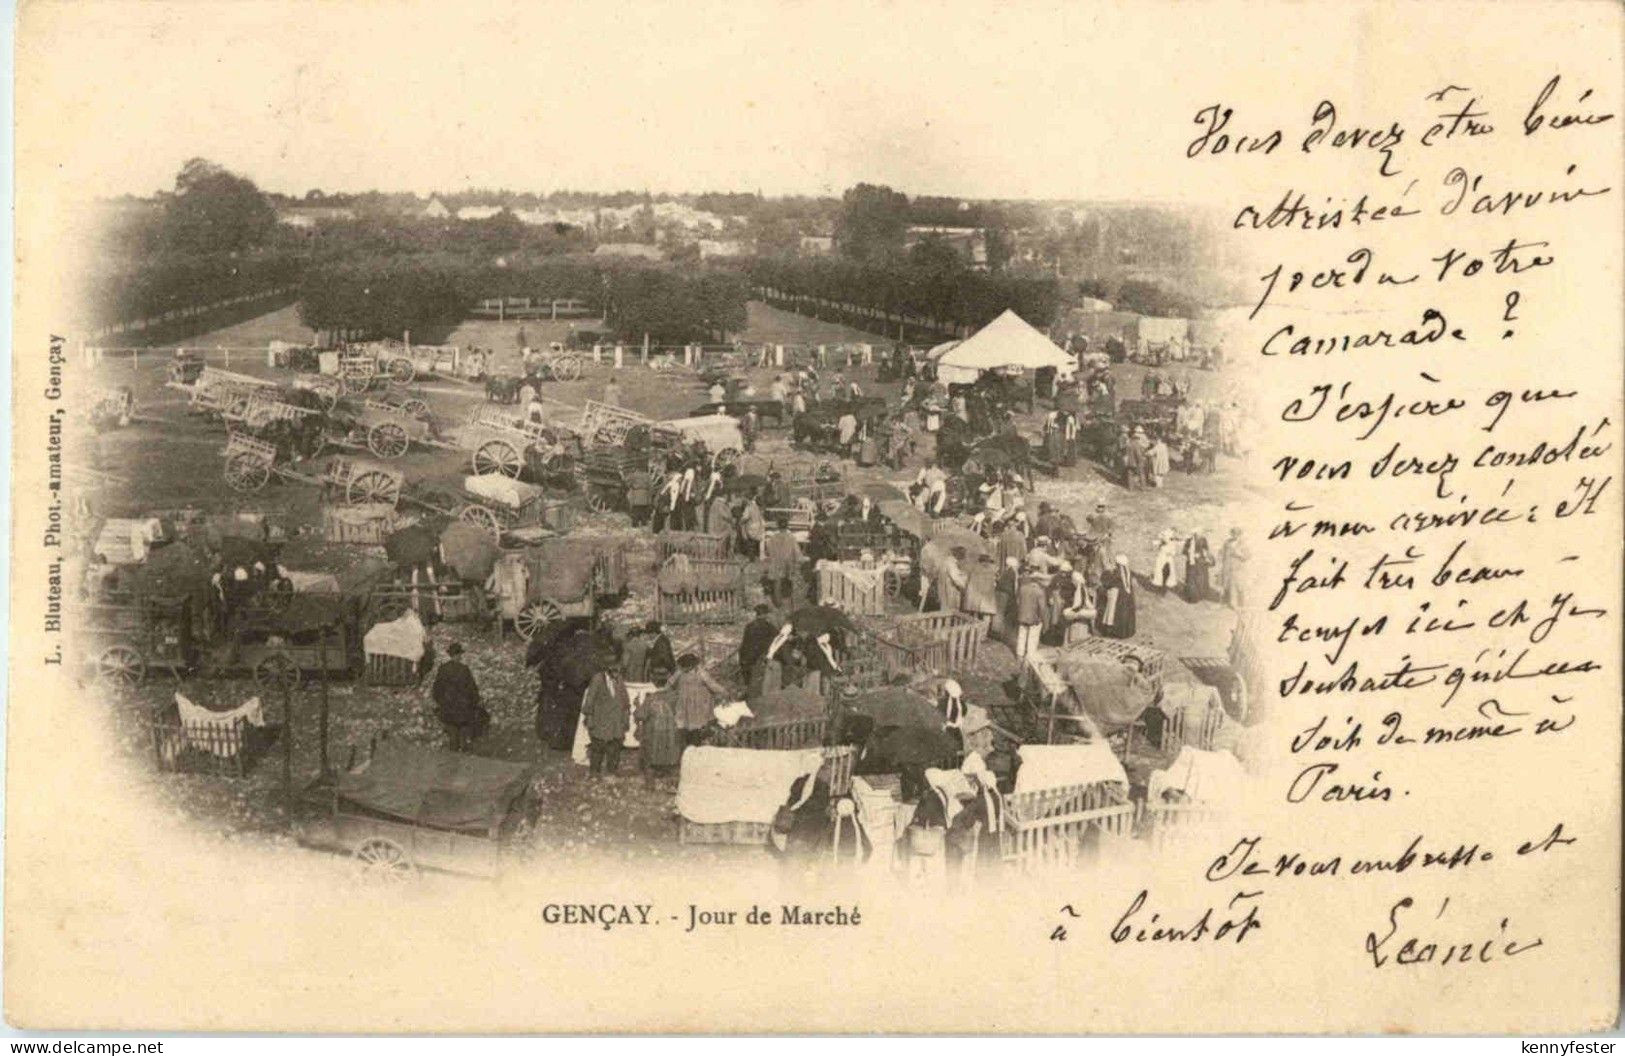 Vous devez être bien
attristée d'avoir
perdu votre
camarade ?
J'espère que
vous serez consolée
à mon arrivée : Il
fait très beau
temps ici et je
souhaite qu'il en
soit de même à
Paris.
Je vous embrasse et
à bientôt
Léonie
L. Bluteau, Phot.-amateur, Gençay
GENÇAY. - Jour de Marché
delcampe.net
kennyfester